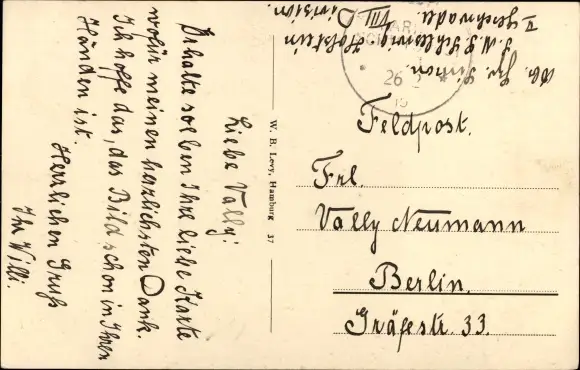 Ob. Hz. Simon.
S.M.S. Schleswig-Holstein
V Geschwader
VIII Division.
MAR
26
15
Feldpost.
Frl.
Vally Neumann
Berlin.
Gräfestr. 33.
W. B. Levy, Hamburg 37
Liebe Vally!
Erhalte soeben Ihre liebe Karte
wofür meinen herzlichsten Dank.
Ich hoffe das, das Bild schon in Ihren
Händen ist.
Herzlichen Gruß
Ihr Willi.